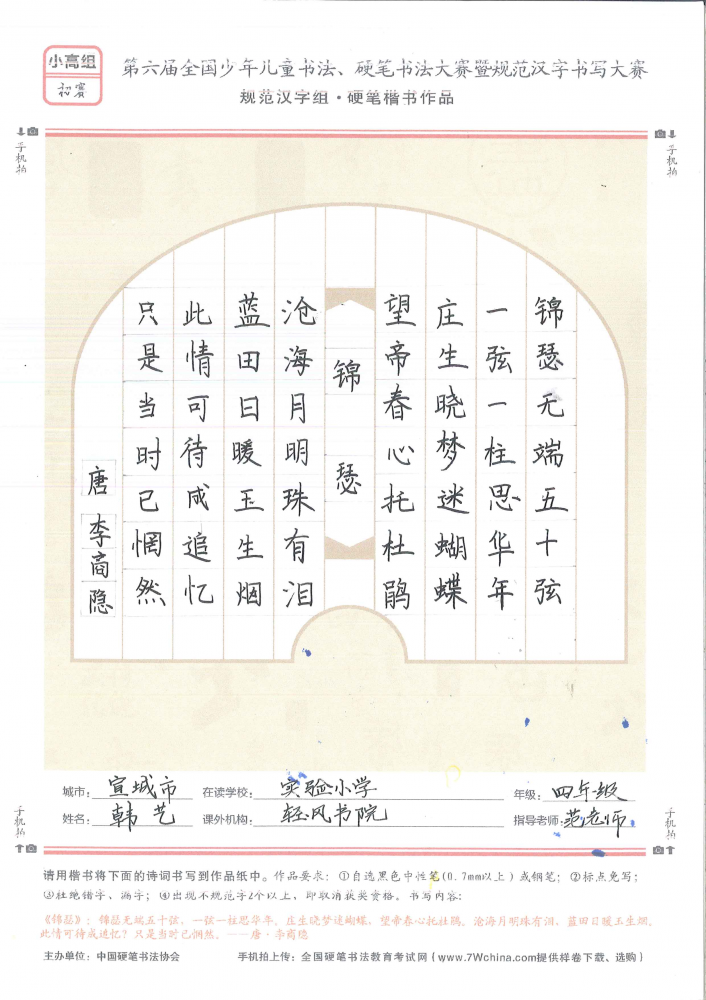 小高组
初赛
第六届全国少年儿童书法、硬笔书法大赛暨规范汉字书写大赛
规范汉字组·硬笔楷书作品
手机拍
手机拍
锦瑟无端五十弦
一弦一柱思华年
庄生晓梦迷蝴蝶
望帝春心托杜鹃
锦瑟
沧海月明珠有泪
蓝田日暖玉生烟
此情可待成追忆
只是当时已惘然
唐 李商隐
城市：宣城市 在读学校：实验小学 年级：四年级
姓名：韩艺 课外机构：轻风书院 指导老师：范老师
手机拍
手机拍
请用楷书将下面的诗词书写到作品纸中。作品要求：①自选黑色中性笔(0.7mm以上)或钢笔；②标点免写；
③杜绝错字、漏字；④出现不规范字2个以上，即取消获奖资格。书写内容：
《锦瑟》：锦瑟无端五十弦，一弦一柱思华年。庄生晓梦迷蝴蝶，望帝春心托杜鹃。沧海月明珠有泪，蓝田日暖玉生烟。
此情可待成追忆？只是当时已惘然。——唐·李商隐
主办单位：中国硬笔书法协会 手机拍上传：全国硬笔书法教育考试网（www.7Wchina.com提供样卷下载、选购）